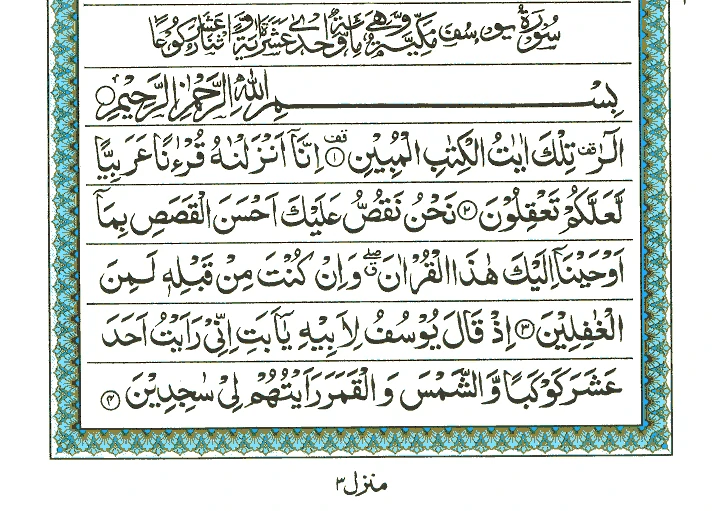 سُوْرَةُ يُوْسُفَ مَكِّيَّةٌ وَّهِيَ مِائَةٌ وَّاِحْدٰى عَشَرَةَ اٰيَةً وَّاثْنَا عَشَرَ رُكُوْعًا
بِسْمِ اللّٰهِ الرَّحْمٰنِ الرَّحِيْمِ
الٓرٰ ۫ تِلْكَ اٰيٰتُ الْكِتٰبِ الْمُبِيْنِ ۫ ۱ اِنَّاۤ اَنْزَلْنٰهُ قُرْءٰنًا عَرَبِيًّا
لَّعَلَّكُمْ تَعْقِلُوْنَ ۲ نَحْنُ نَقُصُّ عَلَيْكَ اَحْسَنَ الْقَصَصِ بِمَاۤ
اَوْحَيْنَاۤ اِلَيْكَ هٰذَا الْقُرْاٰنَ ۖ ق وَاِنْ كُنْتَ مِنْ قَبْلِهٖ لَمِنَ
الْغٰفِلِيْنَ ۳ اِذْ قَالَ يُوْسُفُ لِاَبِيْهِ يٰۤاَبَتِ اِنِّيْ رَاَيْتُ اَحَدَ
عَشَرَ كَوْكَبًا وَّالشَّمْسَ وَالْقَمَرَ رَاَيْتُهُمْ لِيْ سٰجِدِيْنَ ۴
منزل ۳